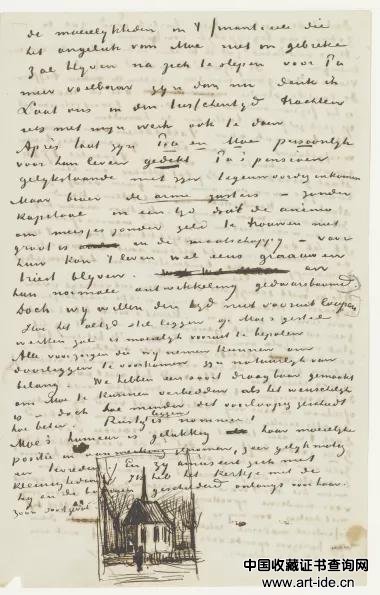 de moeielijkheden in 't financieele die
het ongeluk van Moe niet in gebreke
zal blijven na zich te slepen voor Pa
meer voelbaar zijn dan nu denk ik
Laat ons in dien tusschentijd trachten
iets met mijn werk ook te doen
Apres tout zijn Pa en Moe persoonlijk
voor hun leven gedekt Pa's pensioen
gelijkstaande met zijn tegenwoordig inkomen
Maar broer de arme zusters – zonder
kapitaal in een tijd dat de animo
om meisjes zonder geld te trouwen niet
groot is in de maatschappij – voor
hun kan 't leven wel eens graauw en
triest blijven en
hun normale ontwikkeling gedwarsboomd
Doch wij willen den tijd niet vooruit loopen
Hoe het altijd stil leggen op Moe's gestel
werken zal is moeielijk vooruit te bepalen
Alle voorzorgen die wij nemen kunnen om
doorleggen te voorkomen zijn natuurlijk van
belang. We hebben een soort draagbaar gemaakt
om Moe te kunnen verbedden als het wenschelijk
is – doch hoe minder dit voorloopig geschiedt
hoe beter. Rustig leggen is nommer 1
Moe's humeur is gelukkig haar moeielijke
positie in aanmerking genomen, zeer gelijkmatig
en tevreden. En zij amuseert zich met
kleinigheden. Ik heb het kerkje met de
heg en de boomen geschilderd onlangs voor haar.
zoo
中国收藏证书查询网
www.art-ide.cn